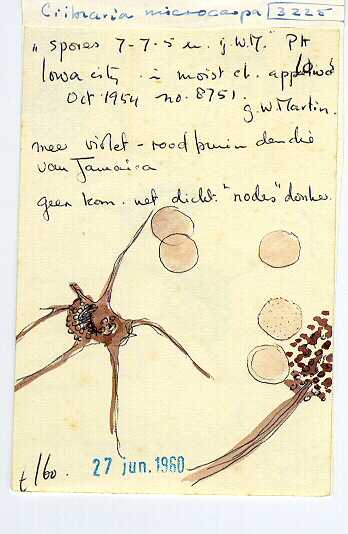 Cribraria microcarpa 3225
"spores 7-7.5 u. G.W.M." PH
Iowa city in moist ch.
Oct 1954 no. 8751.
G.W. Martin.
meer violet-rood bruin dan die
van Jamaica
geen kom. net dicht. "nodes" donker.
t/60.
27 jun. 1960